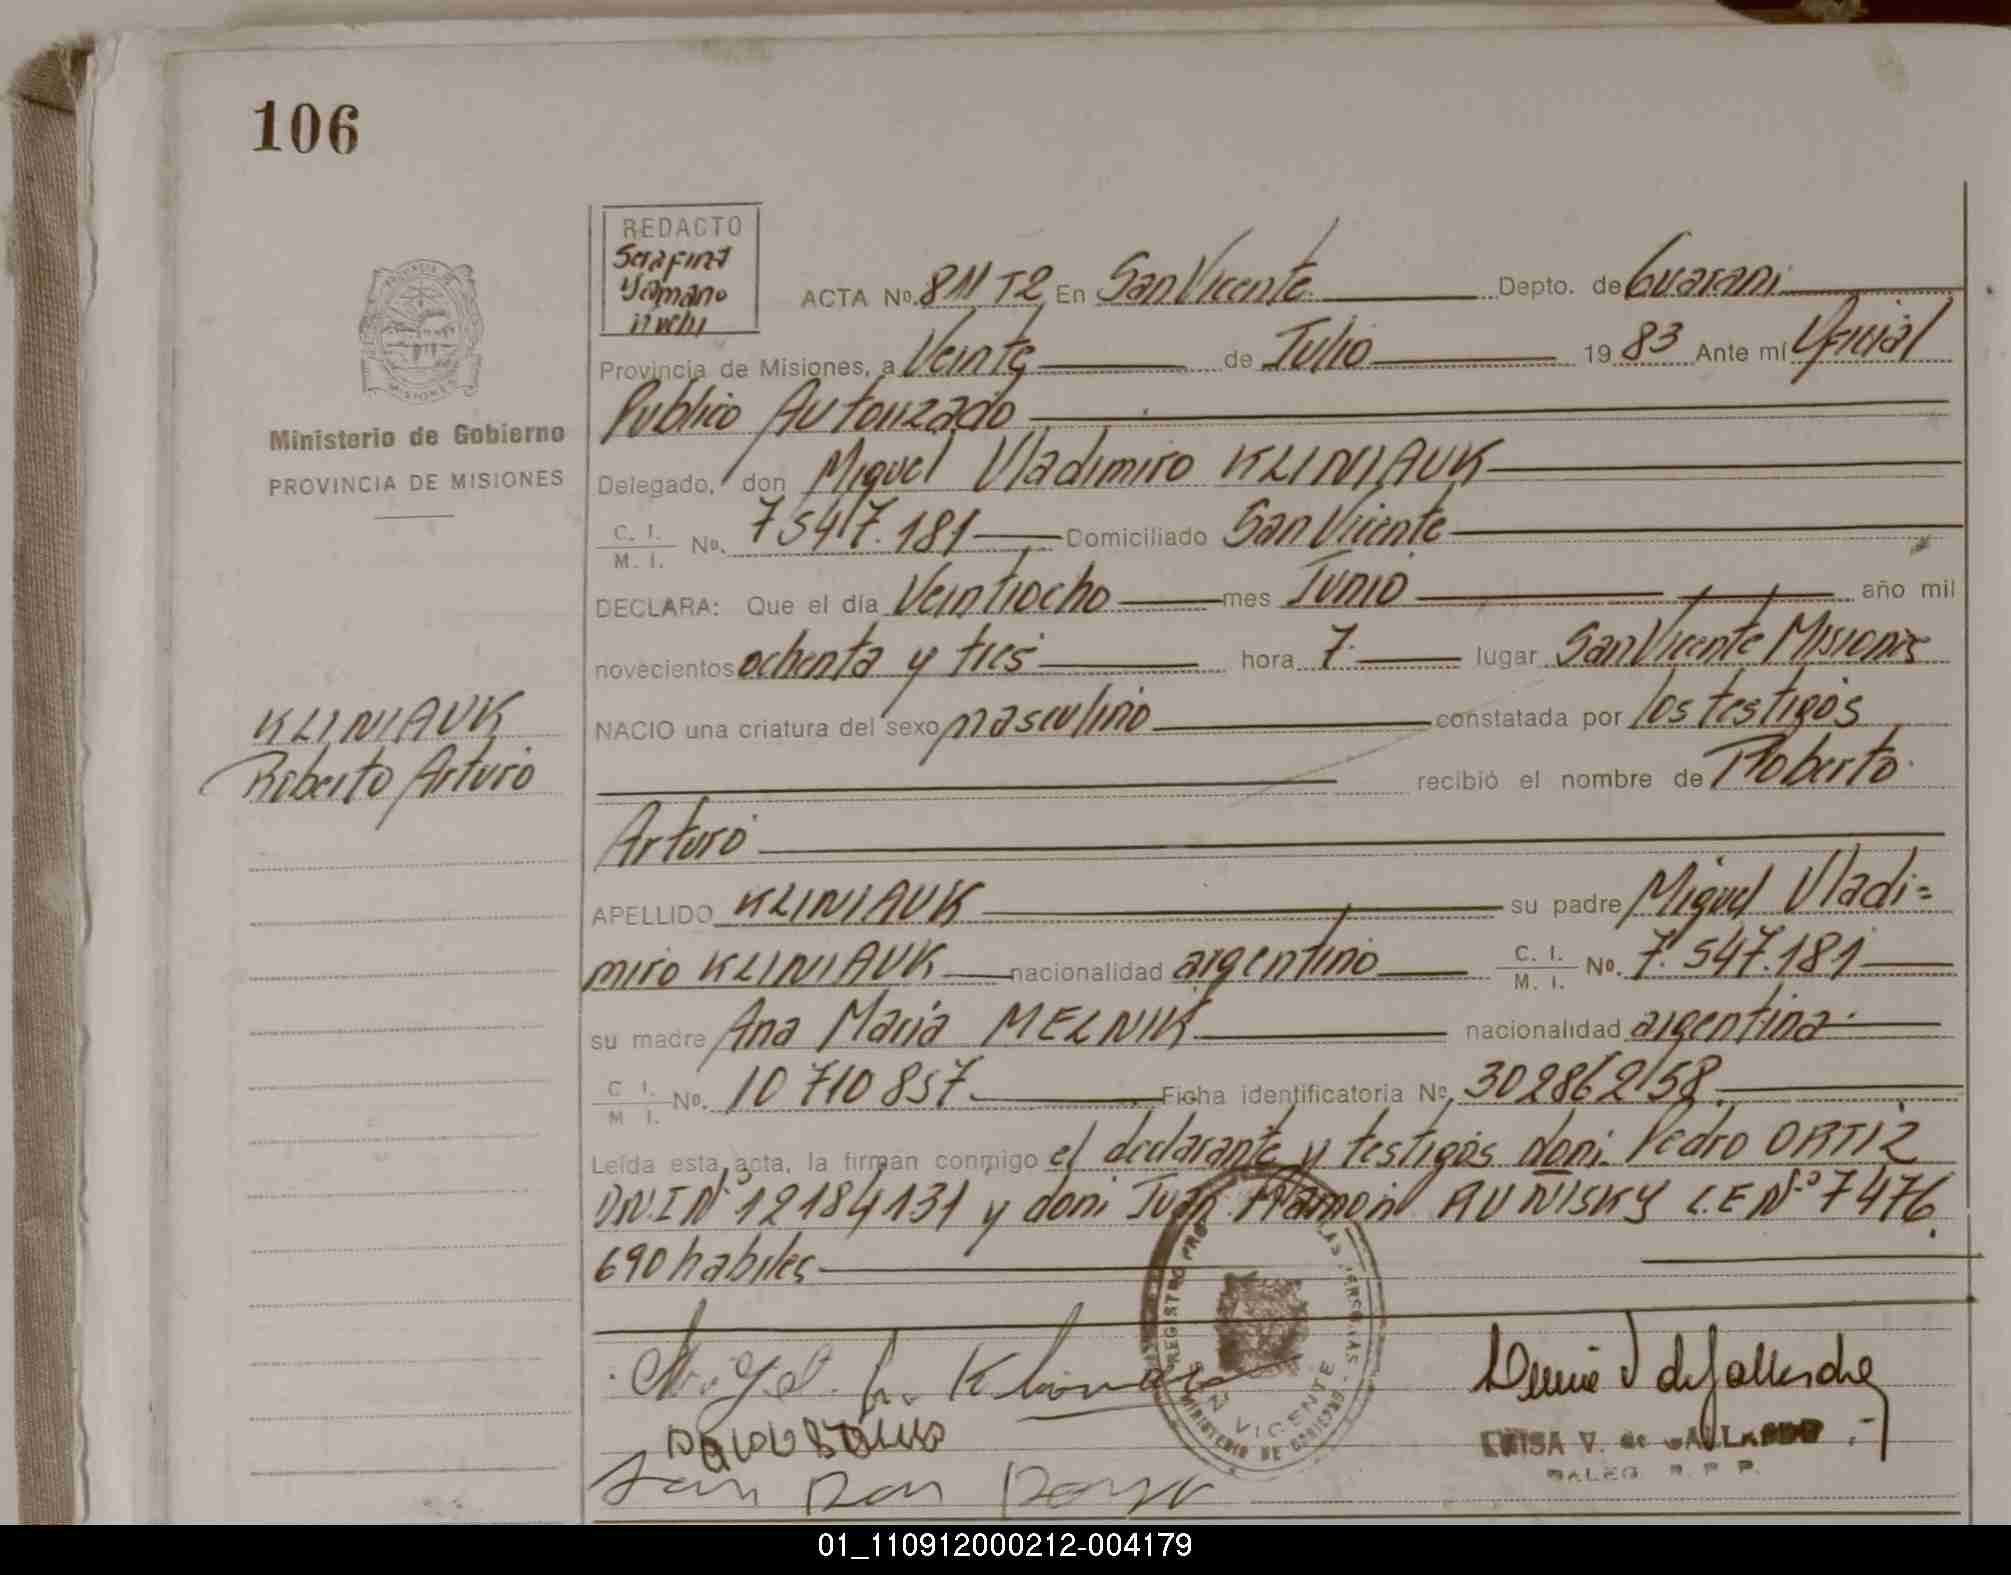 106
REDACTO
Serafina
ACTA No. 811 T2 En San Vicente Depto. de Guarani
Provincia de Misiones, a Veinte de Julio 19 83 Ante mí Oficial
Publico Autorizado
Ministerio de Gobierno
PROVINCIA DE MISIONES
Delegado, don Miguel Vladimiro KLINIAUK
C. I.
M. I. No. 7547.181 Domiciliado San Vicente
DECLARA: Que el día Veintiocho mes Junio año mil
novecientos ochenta y tres hora 7. lugar San Vicente Misiones
KLINIAUK
Roberto Arturo
NACIO una criatura del sexo masculino constatada por los testigos
recibió el nombre de Roberto
Arturo
APELLIDO KLINIAUK su padre Miguel Vladi=
miro KLINIAUK nacionalidad argentino C. I. M. I. No. 7.547.181
su madre Ana Maria MELNIK nacionalidad argentina
C. I.
M. I. No. 10710857 Ficha identificatoria No. 302862158
Leída esta acta, la firman conmigo el declarante y testigos don: Pedro ORTIZ
DN.I Nº 12184131 y don: Juan Ramon AUNISKY L.E Nº 7476.
690 habiles
REGISTRO PRO LAS PERSONAS
SAN VICENTE
MINISTERIO DE GOBIERNO
V. de GALLARDO
01_110912000212-004179